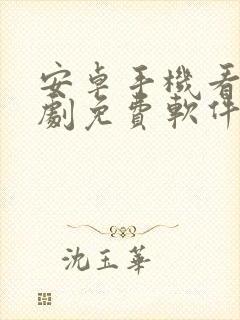 安卓手機看
劇免費軟件
沈玉華